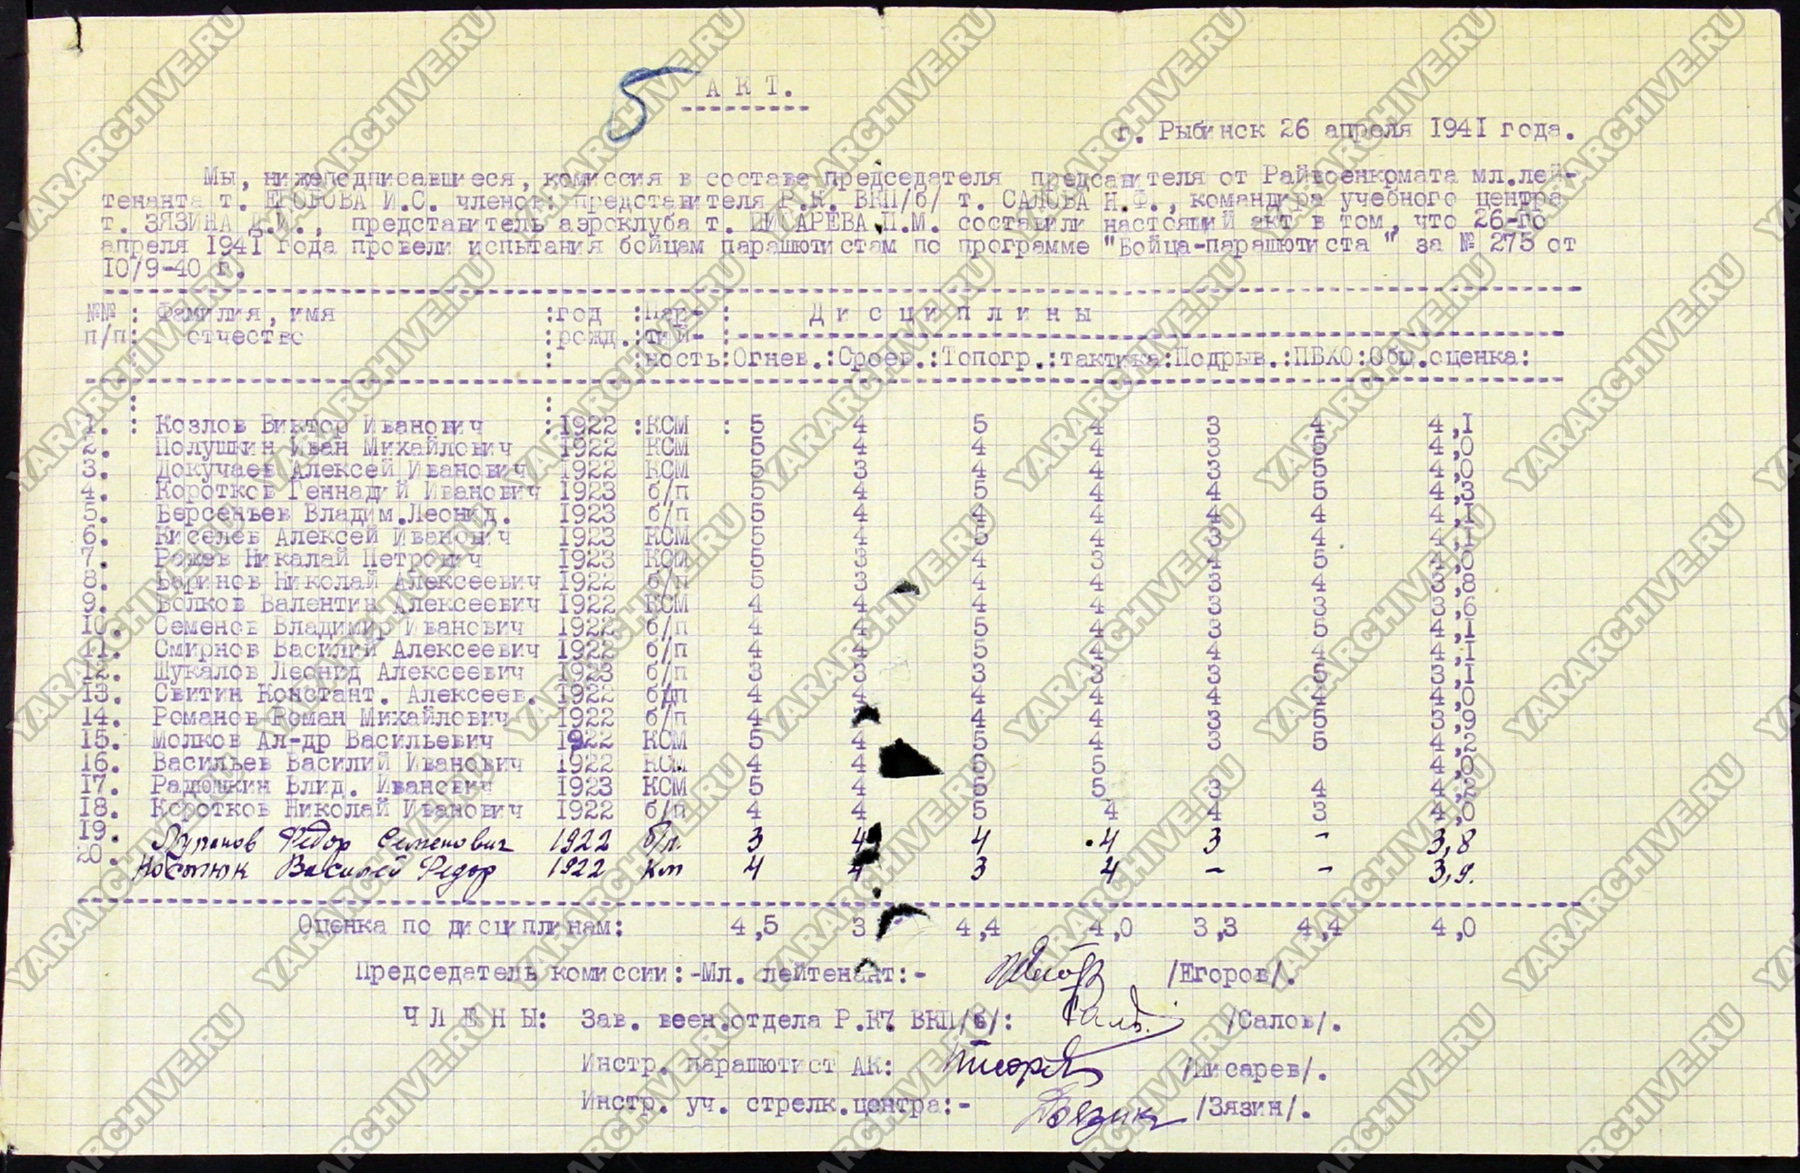 5
А К Т.
г. Рыбинск 26 апреля 1941 года.
Мы, нижеподписавшиеся, комиссия в составе председателя предсавителя от Райвоенкомата мл.лей-
тенанта т. ЕГОРОВА И.С. членов: представителя Р.К. ВКП/б/ т. САЛОВА Н.Ф., командира учебного центра
т. ЗЯЗИНА Д.И., представитель аэроклуба т. ПИСАРЕВА П.М. составили настоящий акт в том, что 26-го
апреля 1941 года провели испытания бойцам парашютистам по программе "Бойца-парашютиста " за № 275 от
10/9-40 г.
№№ : Фамилия, имя :год :Пар- : Д и с ц и п л и н ы
п/п: отчество :рожд.:тий- :
: :ность:Огнев.:Сроев.:Топогр.:тактика:Подрыв.:ПВХО:Общ.оценка:
1. : Козлов Виктор Иванович :1922 :КСМ : 5 4 5 4 3 4 4,1
2. Полушкин Иван Михайлович 1922 КСМ 5 4 4 4 3 5 4,0
3. Докучаев Алексей Иванович 1922 КСМ 5 3 4 4 3 5 4,0
4. Коротков Геннадий Иванович 1923 б/п 5 4 5 4 4 5 4,3
5. Берсеньев Владим.Леонид. 1923 б/п 5 4 4 4 4 4 4,1
6. Киселев Алексей Иванович 1923 КСМ 5 4 5 4 3 4 4,1
7. Рожев Никалай Петрович 1923 КСМ 5 3 4 3 4 5 4,0
8. Баринов Николай Алексеевич 1922 б/п 5 3 4 4 3 4 3,8
9. Волков Валентин Алексеевич 1922 КСМ 4 4 4 4 3 3 3,6
10. Семенов Владимир Иванович 1922 б/п 4 4 5 4 3 5 4,1
11. Смирнов Василий Алексеевич 1922 б/п 4 4 5 4 4 4 4,1
12. Шукалов Леонид Алексеевич 1923 б/п 3 3 3 3 3 5 3,1
13. Свитин Констант. Алексеев. 1922 б/п 4 4 4 4 4 4 4,0
14. Романов Роман Михайлович 1922 б/п 4 4 4 3 5 3,9
15. Молков Ал-др Васильевич 1922 КСМ 5 4 5 4 3 5 4,2
16. Васильев Василий Иванович 1922 КСМ 4 4 5 5 4,0
17. Радюшкин Влид. Иванович 1923 КСМ 5 4 5 5 3 4 4,2
18. Коротков Николай Иванович 1922 б/п 4 4 5 4 4 3 4,0
19. Федор Семенович 1922 б/п. 3 4 4 4 3 - 3,8
20. Костюк Василей Федор 1922 Км 4 4 3 4 - - 3,9.
Оценка по дисциплинам: 4,5 3 4,4 4,0 3,3 4,4 4,0
Председатель комиссии:-Мл. лейтенант:- /Егоров/.
Ч Л Е Н Ы: Зав. воен.отдела Р.К. ВКП/б/: /Салов/.
Инстр. парашютист АК: /Писарев/.
Инстр. уч. стрелк.центра:- /Зязин/.
YARARCHIVE.RU